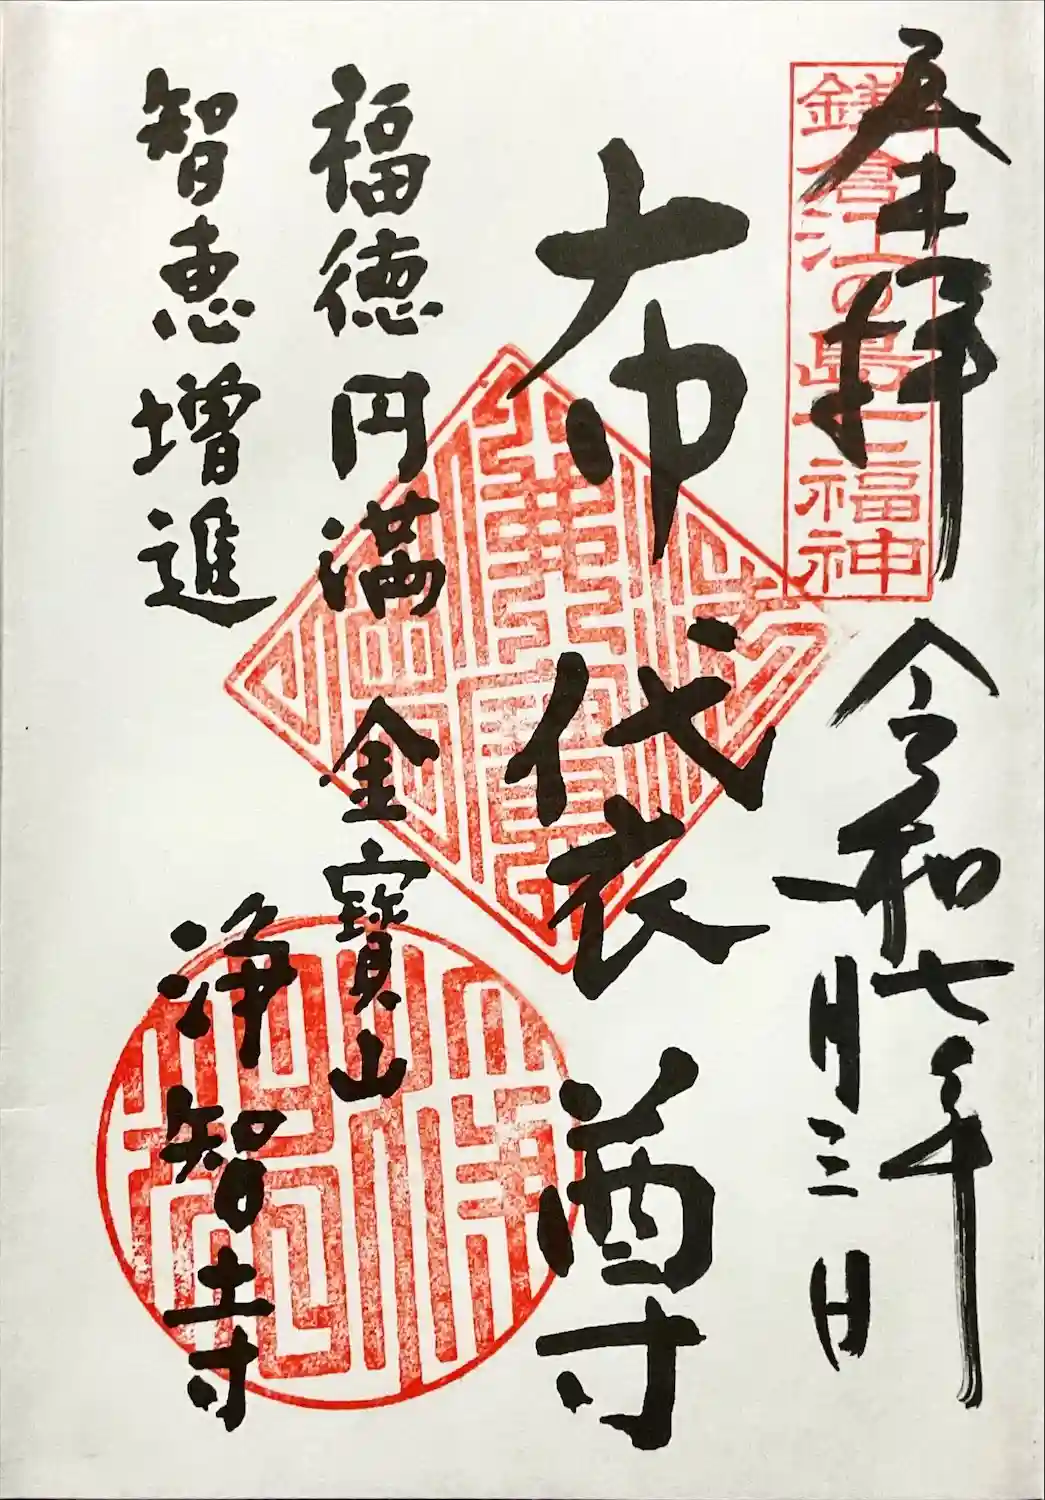 鎌倉江の島七福神
奉拝 令和七年
一月三日
布袋尊
福徳円満 金寶山
智恵増進 浄智寺